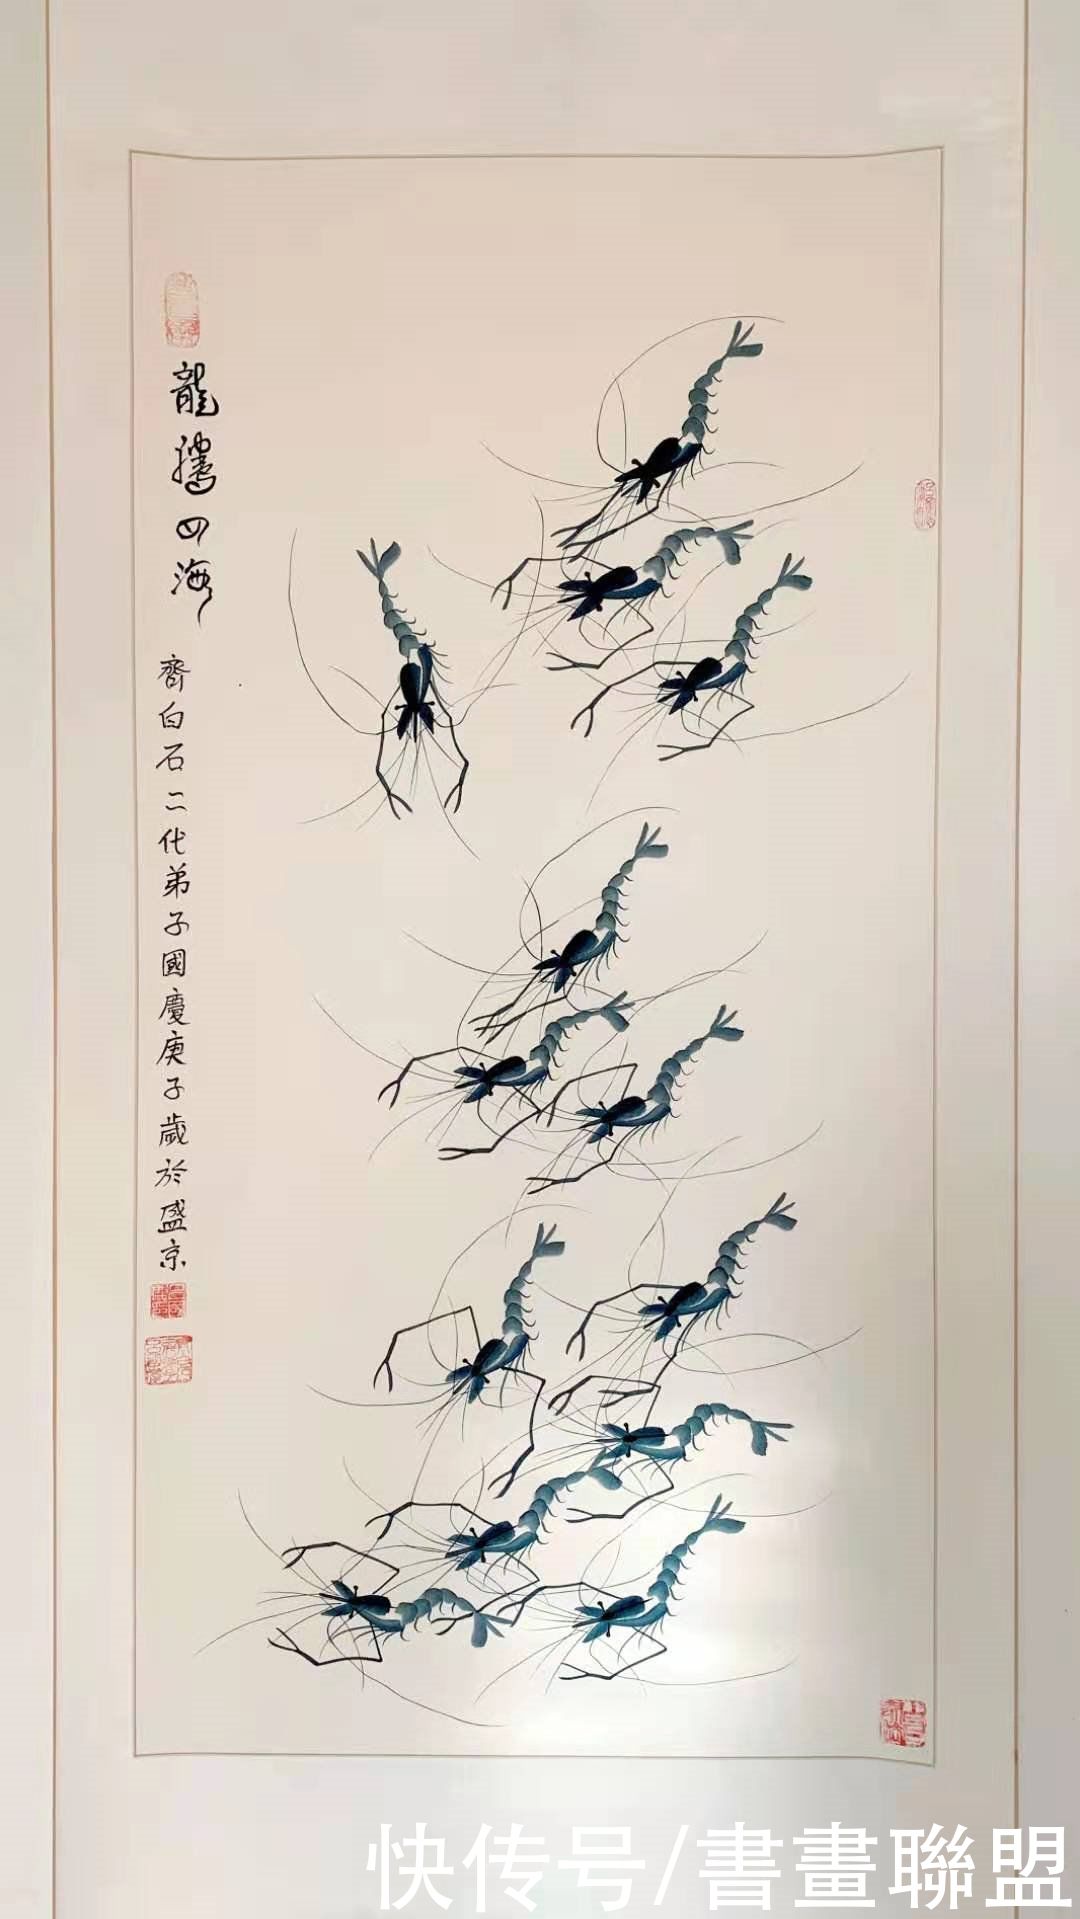 龍騰四海
齊白石二代弟子國慶庚子歲於盛京
快传号/書畫聯盟